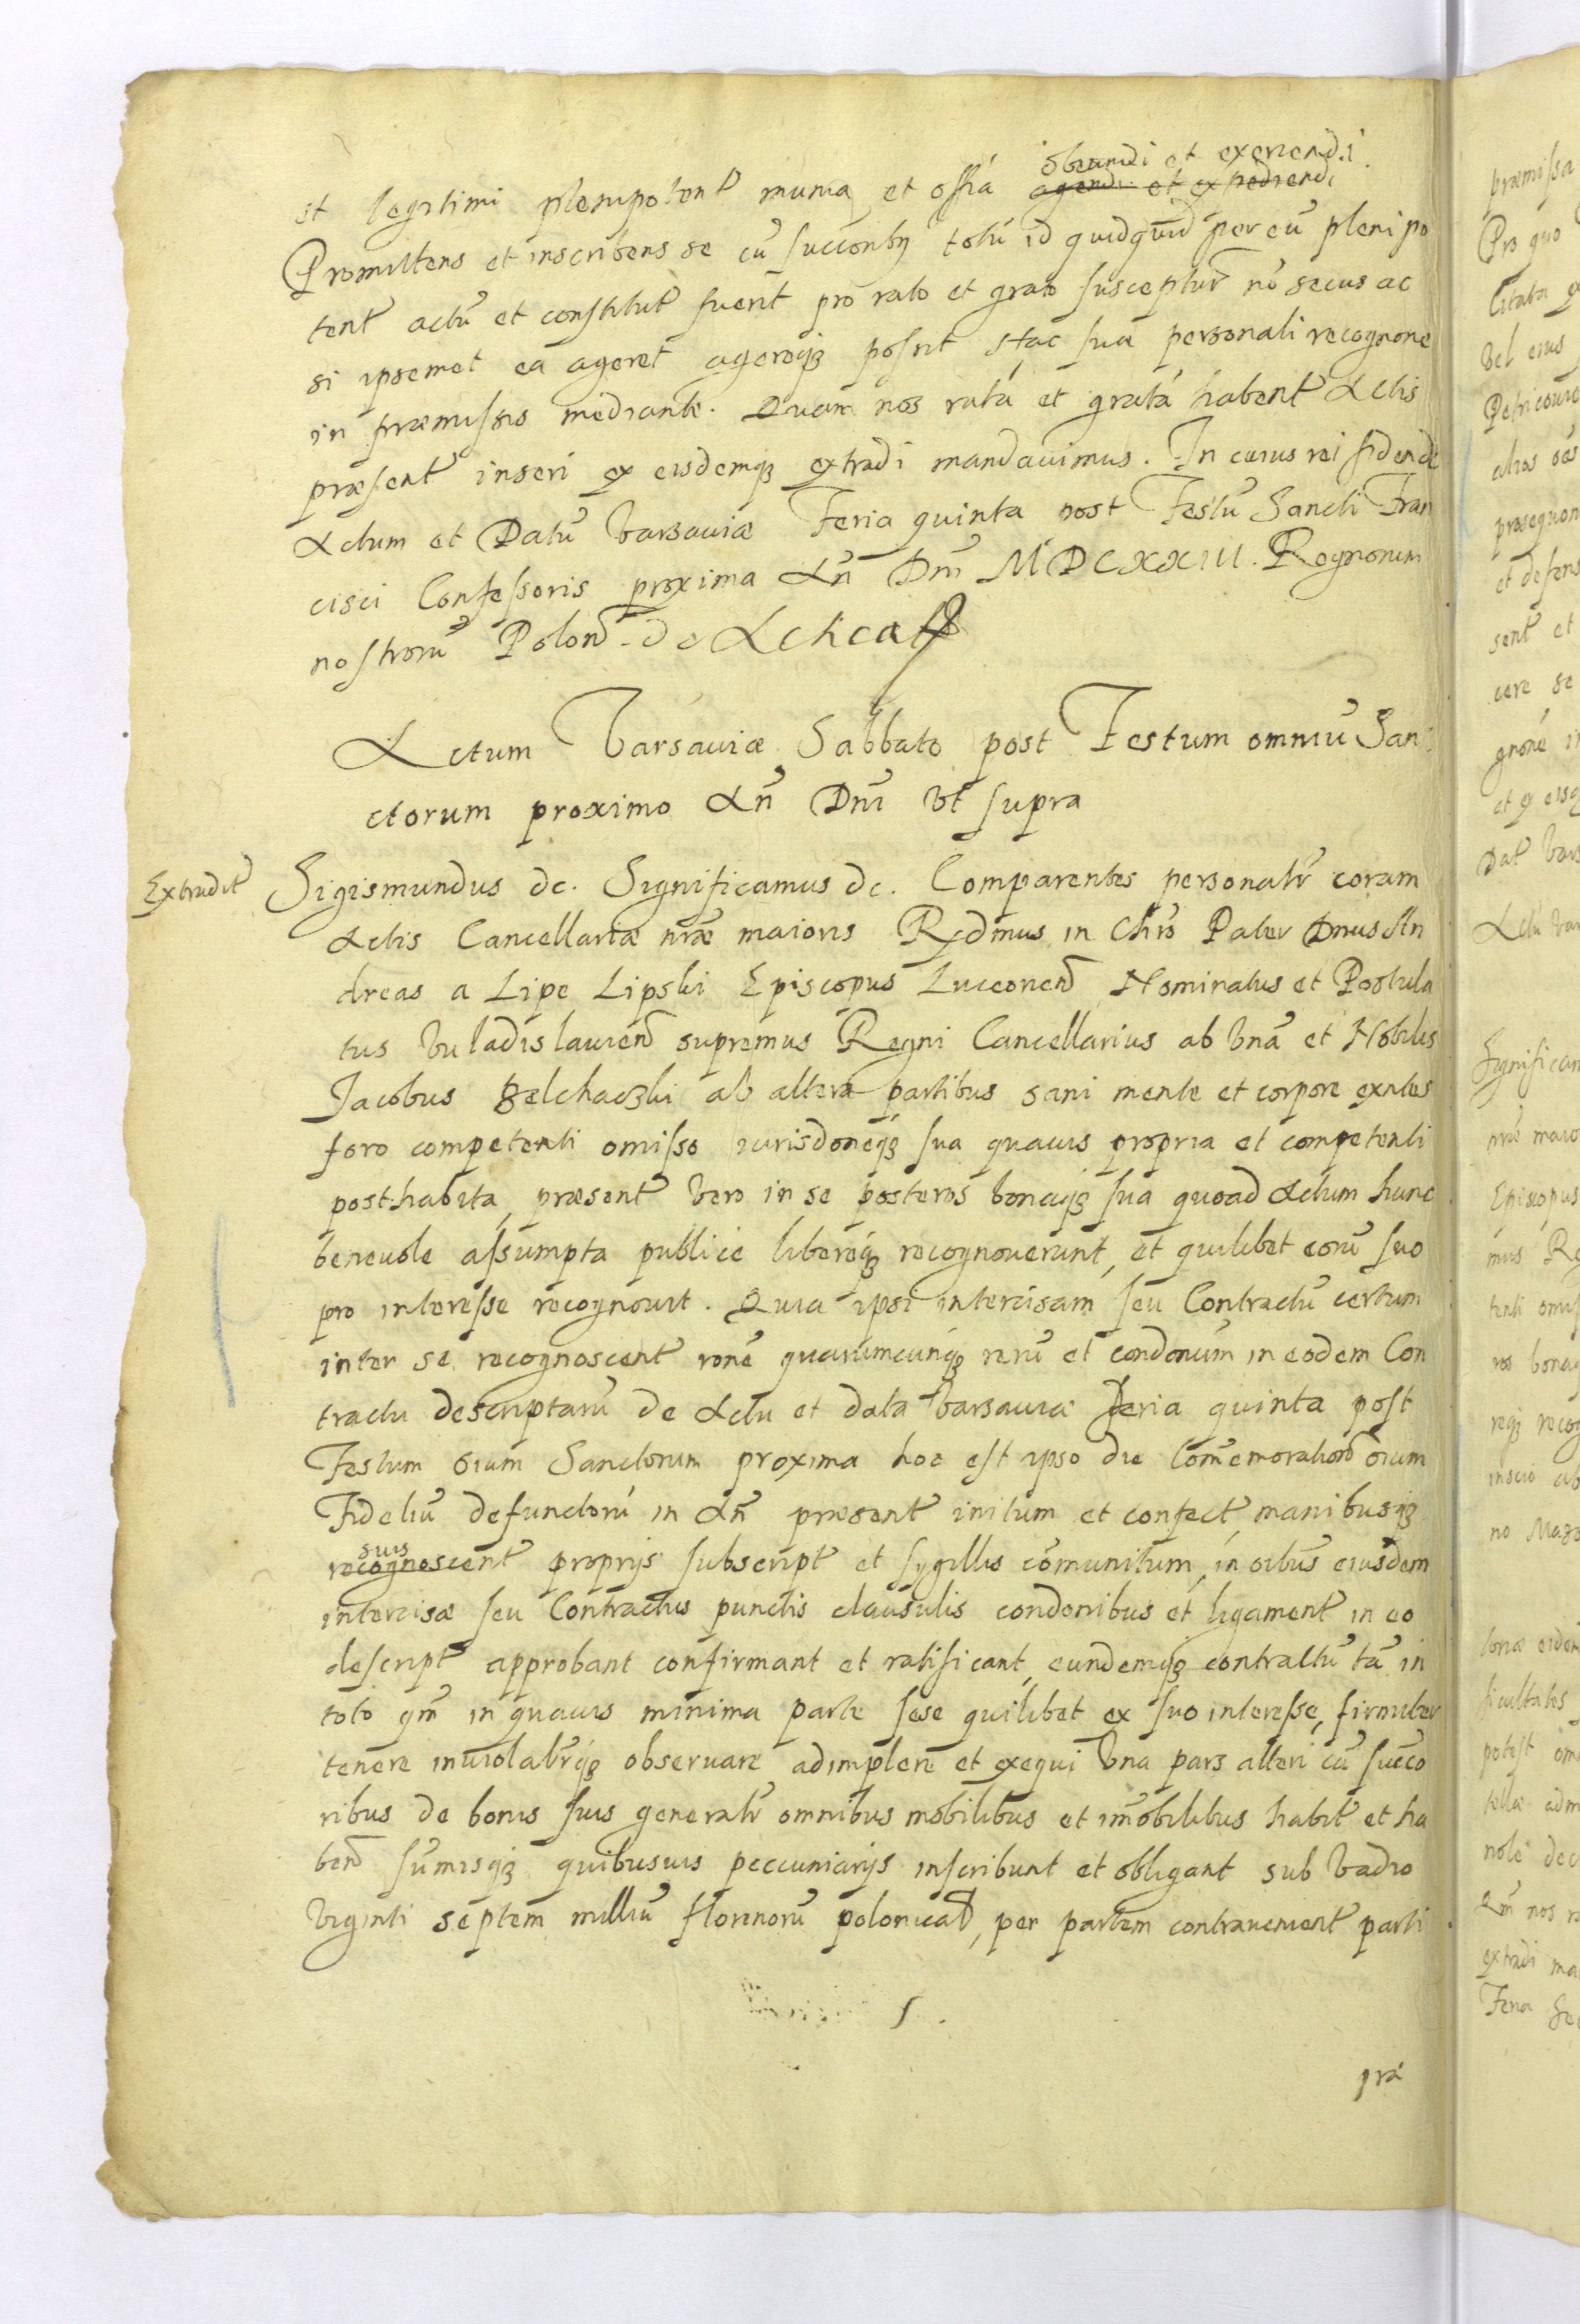 obeundi et exercendi
et legitimi plenipotent munia et offia agendi et expediendi
Promittens et inscribens se cu succorib9 totu id quidquid per eu plenipo
tent actu et constitut fuerit pro rato et grato susceptur no secus ac
si ipsemet ea ageret agereq3 possit hac sua personali recognone
in præmissis mediante. Quam nos ratá et gratá habent Actis
præsent inseri ex eisdemq3 extradi mandauimus. In cuius rei fidem dc
Actum et Datu Varsauiæ Feria quinta post Festu Sancti Fran
cisci Confessoris proxima An Dni MDCXXIII. Regnorum
nostroru Polon dc
Actum Varsauiæ Sabbato post Festum omniu San
ctorum proximo An Dni vt supra
Extradit
Sigismundus dc. Significamus dc. Comparentes personalr coram
Actis Cancellariæ nræ maioris Rędmus in Chro Pater Dnus An
dreas a Lipe Lipski Episcopus Luceonen Nominatus et Postula
tus Vuladislauien supremus Regni Cancellarius ab vna et Nobilis
Jacobus Bełchaczki ab altera partibus sani mente et corpore exntes
foro competenti omisso iurisdoneq3 sua quauis propria et competenti
posthabita, præsent vero in se posteros bonaq3 sua quoad Actum hunc
beneuole assumpta publice libereq3 recognouerunt, et quilibet eoru suo
pro interesse recognouit. Quia ipsi intercisam seu Contractu certum
inter se recognoscent rone quarumcunq3 reru et condonum in eodem Con
tractu descriptaru de Actu et data Varsauiæ Feria quinta post
Festum oium Sanctorum proxima hoc est ipso die Comemoration oium
Fideliu defunctoru in An præsent initum et confect manibusq3
suis
recognoscent proprijs subscript et sygillis comunitum, in oibus eiusdem
intercisæ seu Contractus punctis clausulis condonibus et ligament in eo
descript approbant confirmant et ratificant, eundemq3 contractu ta in
toto qm in quauis minima parte sese quilibet ex suo interesse, firmiter
tenere inuiolatrq3 obseruare adimplere et exequi vna pars alteri cu succo
ribus de bonis suis generalr omnibus mobilibus et imobilibus habit et ha
ben sumisq3 quibusuis peccuniarijs inscribunt et obligant sub vadio
viginti septem milliu florenoru polonical, per partem contrauenient parti
prá